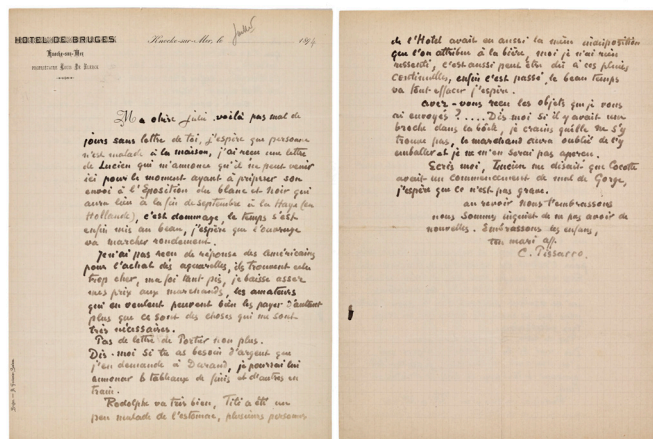 HOTEL DE BRUGES
Knocke-sur-Mer
Knocke-sur-Mer, le Juillet 1894
Ma chère Julie, voilà pas mal de
jours sans lettre de toi, j'espère que personne
n'est malade à la maison, j'ai reçu une lettre
de Lucien qui m'annonce qu'il ne peut venir
ici pour le moment ayant à préparer son
envoi à l'Exposition du blanc et noir qui
aura lieu à la fin de septembre à la Haye (en
Hollande), c'est dommage, le temps s'est
enfin mis au beau, j'espère que l'ouvrage
va marcher rondement.
Je n'ai pas reçu de réponse des américains
pour l'achat des aquarelles, ils trouvent cela
trop cher, ma foi tant pis, je baisse assez
mes prix aux marchands, les amateurs
qui en veulent peuvent bien les payer d'autant
plus que ce sont des choses qui me sont
très nécessaires.
Pas de lettre de Portier non plus.
Dis-moi si tu as besoin d'argent que
j'en demande à Durand, je pourrai lui
annoncer 6 tableaux de finis et d'autres en
train.
Rodolphe va très bien, Titi a été un
peu malade de l'estomac, plusieurs personnes
de l'Hotel avait eu aussi la même indisposition
que l'on attribue à la bière, moi je n'ai rien
ressenti, c'est aussi peut être dû à ces pluies
continuelles, enfin c'est passé, le beau temps
va tout effacer j'espère.
avez-vous reçu les objets que je vous
ai envoyés ?..... Dis moi si il y avait une
broche dans la boîte, je crains qu'elle ne s'y
trouve pas, le marchand aura oublié de l'y
emballer et je ne m'en serai pas aperçu.
Ecris moi, Lucien me disait que Cocotte
avait un commencement de mal de Gorge,
j'espère que ce n'est pas grave.
au revoir nous t'embrassons
nous sommes inquiet de ne pas avoir de
nouvelles. Embrassons les enfans,
ton mari aff.
C. Pissarro.